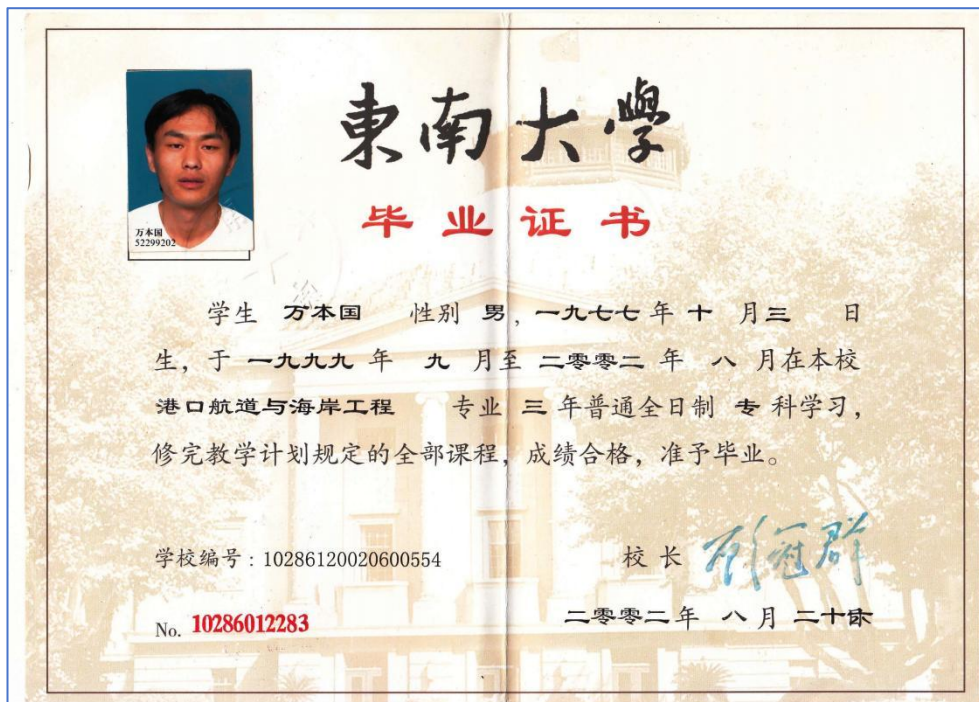 東南大學
毕业证书
万本国
52299202
学生 万本国 性别 男，一九七七 年 十 月 三 日
生，于 一九九九 年 九 月至 二零零二 年 八 月在本校
港口航道与海岸工程 专业 三 年普通全日制 专 科学习，
修完教学计划规定的全部课程，成绩合格，准予毕业。
学校编号：10286120020600554
校 长 顾冠群
No. 10286012283
二零零二 年 八 月 二十